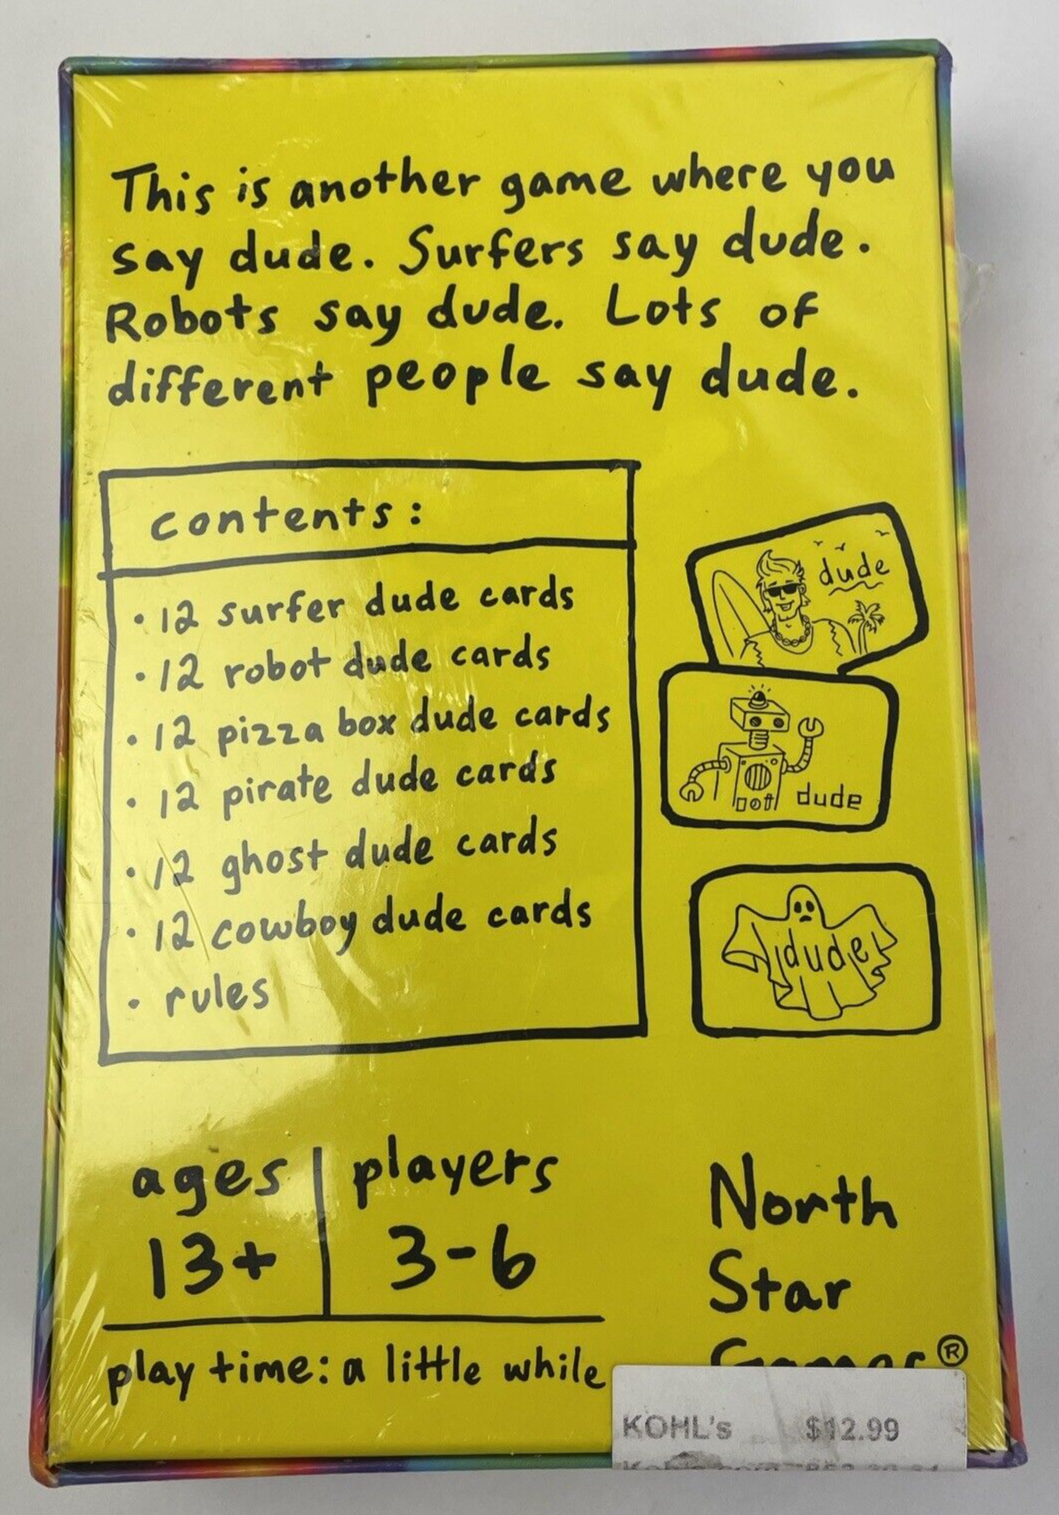 This is another game where you
say dude. Surfers say dude.
Robots say dude. Lots of
different people say dude.
contents:
• 12 surfer dude cards
• 12 robot dude cards
• 12 pizza box dude cards
• 12 pirate dude cards
• 12 ghost dude cards
• 12 cowboy dude cards
• rules
dude
dude
dude
ages
13+
players
3-6
play time: a little while
North
Star
Games®
KOHL's $12.99